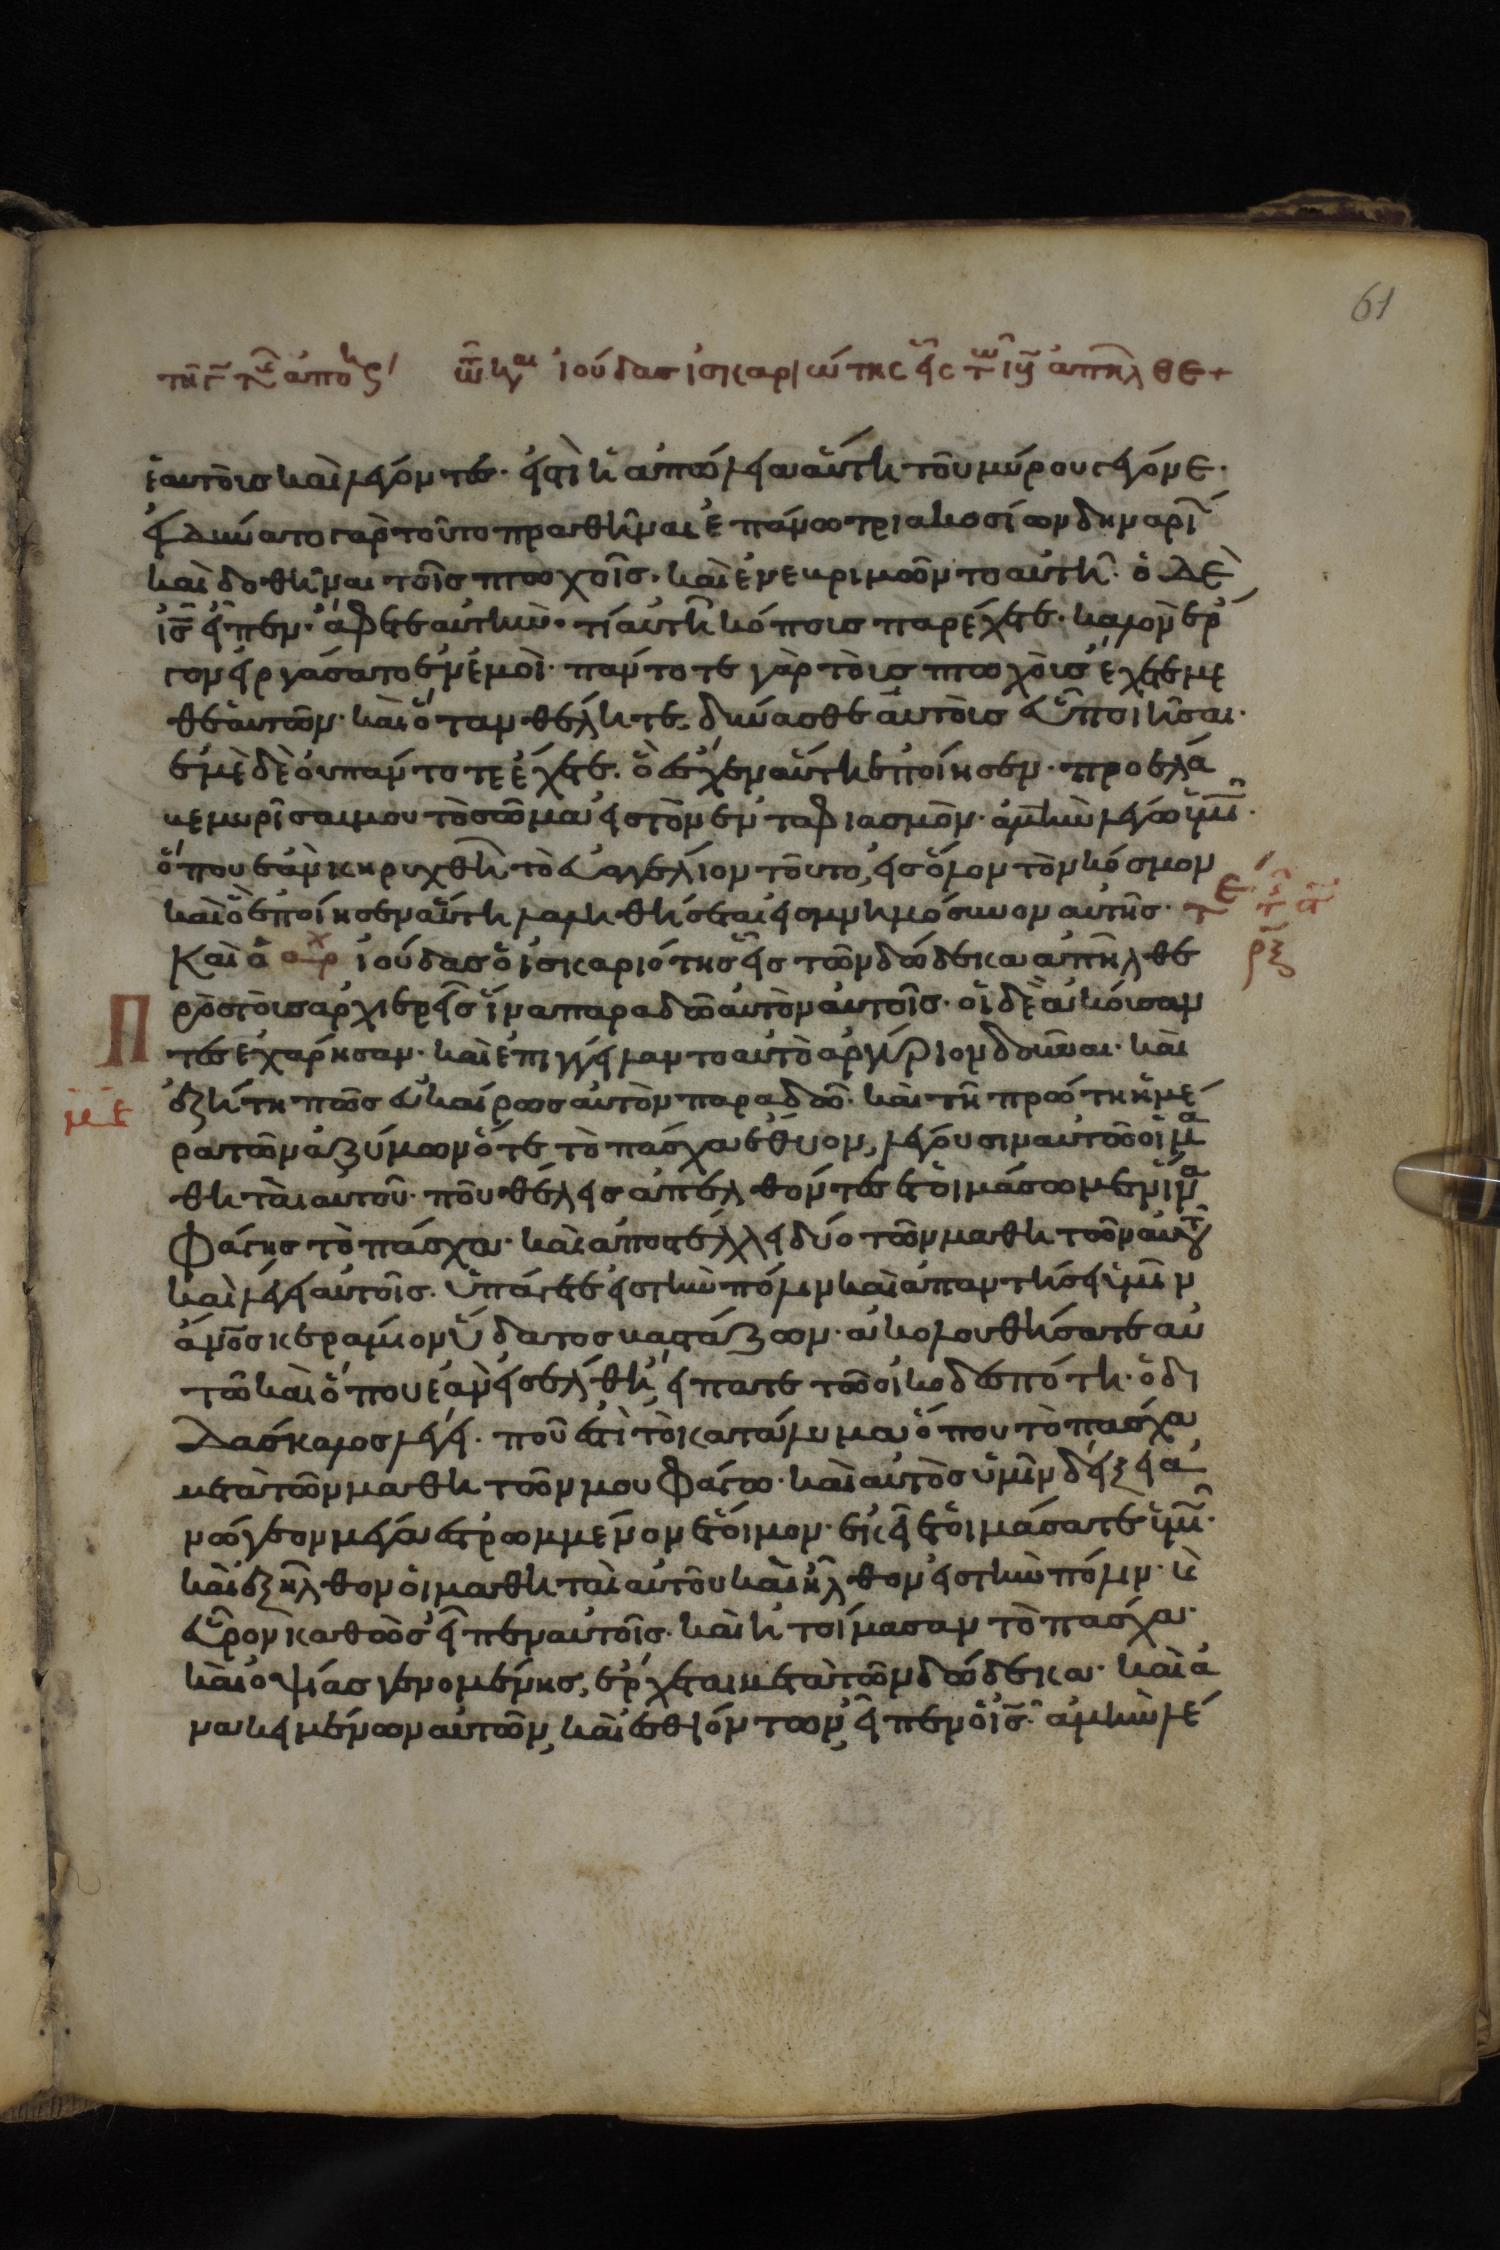 61
τῆ γ τῆς ἀπόκρ τῷ κ ἰούδας ἰσκαριώτης εἷς τῶν ιβ ἀπῆλθε+
ἑαυτοὺς καὶ λέγοντες· εἰς τί ἡ ἀπώλεια αὕτη τοῦ μύρου γέγονε·
ἐδύνατο γὰρ τοῦτο πραθῆναι ἐπάνω τριακοσίων δηναρί
καὶ δοθῆναι τοῖς πτωχοῖς· καὶ ἐνεβριμῶντο αὐτῆ· ὁ δὲ
ἰς εἶπεν· ἄφετε αὐτήν· τί αὐτῆ κόπους παρέχετε· καλὸν ἔρ
γον εἰργάσατο ἐν ἐμοί· πάντοτε γὰρ τοὺς πτωχοὺς ἔχετε με
θ ἑαυτῶν· καὶ ὅταν θέλητε, δύνασθε αὐτοὺς εὖ ποιῆσαι·
ἐμὲ δὲ οὐ πάντοτε ἔχετε. ὃ ἔσχεν αὕτη ἐποίησεν· προέλα
βε μυρίσαι μου τὸ σῶμα εἰς τὸν ἐνταφιασμόν· ἀμὴν λέγω ὑμῖ·
ὅπου ἐὰν κηρυχθῆ τὸ εὐαγγέλιον τοῦτο, εἰς ὅλον τὸν κόσμον
καὶ ὃ ἐποίησεν αὕτη λαληθήσεται εἰς μνημόσυνον αὐτῆς·
Καὶ ἀρχ ἰούδας ὁ ἰσκαριότης εἷς τῶν δώδεκα ἀπῆλθε
Πρὸς τοὺς ἀρχιερεῖς ἵνα παραδῶ αὐτὸν αὐτοῖς· οἱ δὲ ἀκούσαν
τες ἐχάρησαν· καὶ ἐπιγγείλαντο αὐτὸ ἀργύριον δοῦναι· καὶ
ἐζήτη πῶς εὐκαίρως αὐτὸν παραδῶ· καὶ τῆ πρώτη ἡμέ
ρα τῶν ἀζύμων ὅτε τὸ πάσχα ἔθυον, λέγουσιν αὐτῶ οἱ μα
θηταὶ αὐτοῦ· ποῦ θέλεις ἀπελθόντες ἑτοιμάσωμεν ἵνα
φάγης τὸ πάσχα· καὶ ἀποστέλλει δύο τῶν μαθητῶν αὐτοῦ
καὶ λέγει αὐτοῖς· ὑπάγετε εἰς τὴν πόλιν καὶ ἀπαντήσει ὑμῖν
ἀνος κεράμιον ὕδατος βαστάζων· ἀκολουθήσατε αὐ
τῶ καὶ ὅπου ἐὰν εἰσέλθη, εἴπατε τῶ οἰκοδεσπότη· ὁ δι
δάσκαλος λέγει· ποῦ ἐστὶ τὸ κατάλυμα ὅπου τὸ πάσχα
μετὰ τῶν μαθητῶν μου φάγω· καὶ αὐτὸς ὑμῖν δείξει ἀ
νώγεον μέγα ἐστρωμμένον ἕτοιμον· ἐκεῖ ἑτοιμάσατε ὑμῖ·
καὶ ἐξῆλθον οἱ μαθηταὶ αὐτοῦ καὶ ἦλθον εἰς τὴν πόλιν· κ
εὗρον καθὼς εἶπεν αὐτοῖς· καὶ ἡτοίμασαν τὸ πάσχα·
καὶ ὀψίας γενομένης, ἔρχεται μετὰ τῶν δώδεκα· καὶ ἀ
νακειμένων αὐτῶν, καὶ ἐσθιόντων, εἶπεν ὁ ἰς· ἀμὴν λέ